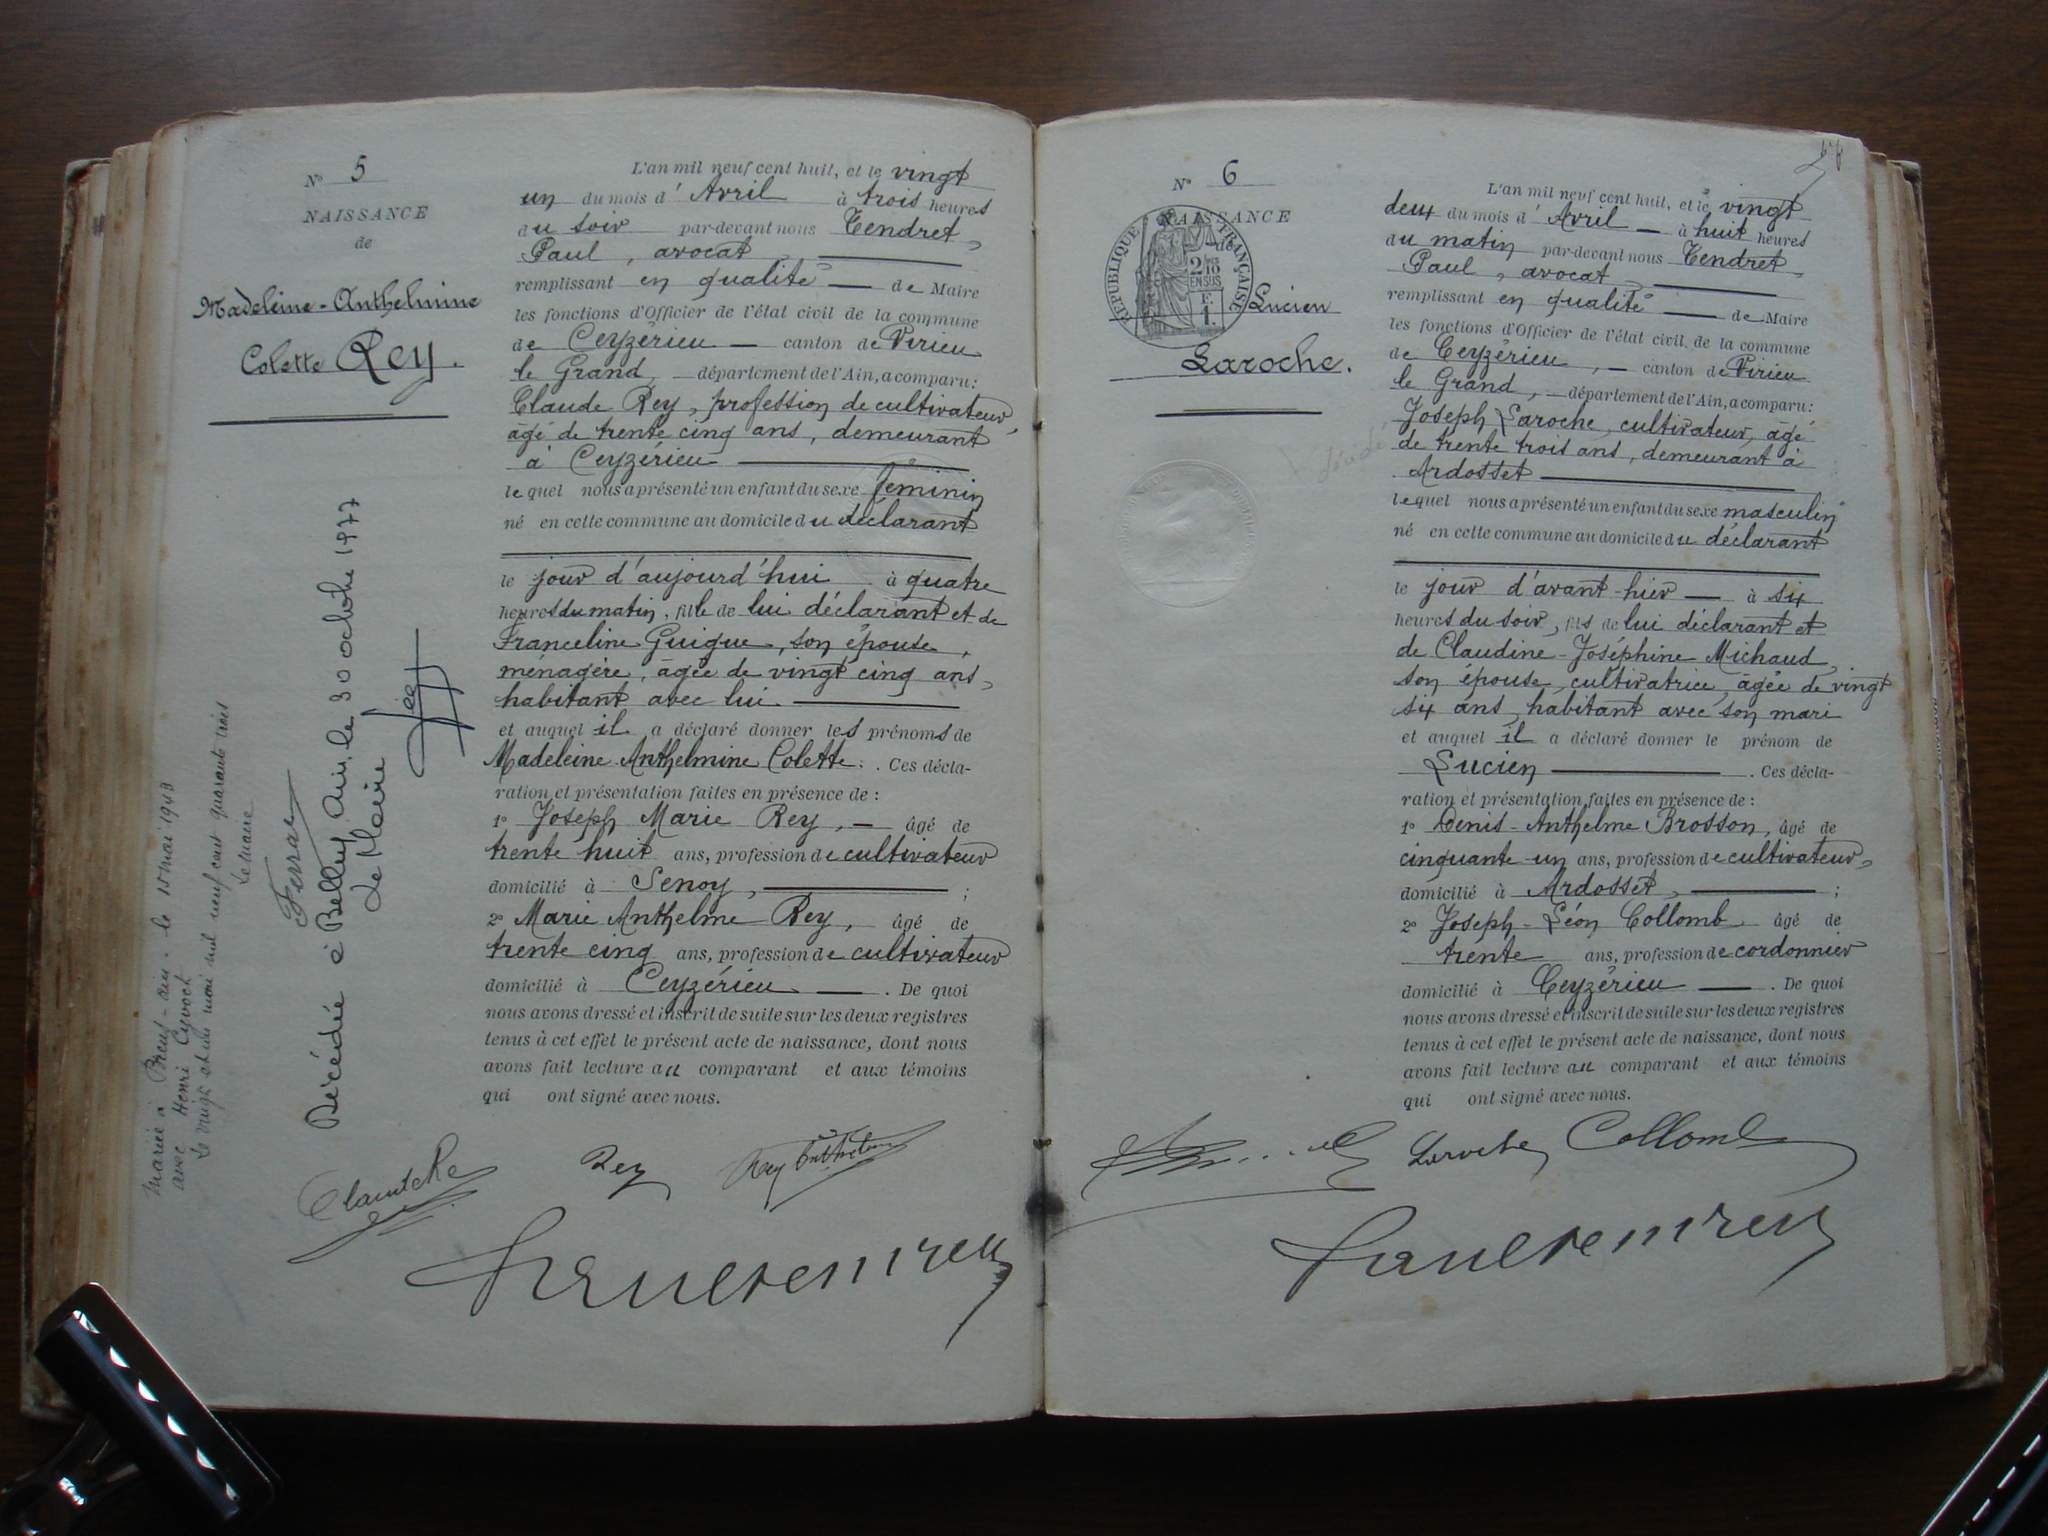 N° 5
NAISSANCE
de
Madeleine-Anthelmine
Colette Rey.
L'an mil neuf cent huit, et le vingt
un du mois d'Avril à trois heures
du soir par-devant nous Tendret,
Paul, avocat,
remplissant en qualité de Maire
les fonctions d'Officier de l'état civil de la commune
de Ceyzérieu canton de Virieu
le Grand, département de l'Ain, a comparu :
Claude Rey, profession de cultivateur,
âgé de trente cinq ans, demeurant
à Ceyzérieu
lequel nous a présenté un enfant du sexe féminin
né en cette commune au domicile du déclarant
le jour d'aujourd'hui à quatre
heures du matin, fille de lui déclarant et de
Franceline Guigue, son épouse,
ménagère, âgée de vingt cinq ans,
habitant avec lui.
et auquel il a déclaré donner les prénoms de
Madeleine Anthelmine Colette. Ces décla-
ration et présentation faites en présence de :
1° Joseph Marie Rey, âgé de
trente huit ans, profession de cultivateur
domicilié à Senoy, ;
2° Marie Anthelme Rey, âgé de
trente cinq ans, profession de cultivateur
domicilié à Ceyzérieu . De quoi
nous avons dressé et inscrit de suite sur les deux registres
tenus à cet effet le présent acte de naissance, dont nous
avons fait lecture au comparant et aux témoins
qui ont signé avec nous.
Claude Re
Rey
Rey Anthelme
Mariée à - ain - le 15 mai 1943
avec Henri Cyvoct
Le vingt et du mai mil neuf cent quarante trois
Le maire
Décédée à Belley Ain, le 30 octobre 1977
Le Maire
N° 6
NAISSANCE
de
RÉPUBLIQUE FRANÇAISE
2/10
EN SUS
F.
1.
Lucien
Laroche.
L'an mil neuf cent huit, et le vingt
deux du mois d'Avril à huit heures
du matin par-devant nous Tendret,
Paul, avocat,
remplissant en qualité de Maire
les fonctions d'Officier de l'état civil de la commune
de Ceyzérieu, canton de Virieu
le Grand, département de l'Ain, a comparu :
Joseph Laroche, cultivateur, âgé
de trente trois ans, demeurant à
Ardosset
lequel nous a présenté un enfant du sexe masculin
né en cette commune au domicile du déclarant
le jour d'avant-hier à six
heures du soir, fils de lui déclarant et
de Claudine-Joséphine Michaud,
son épouse, cultivatrice, âgée de vingt
six ans, habitant avec son mari
et auquel il a déclaré donner le prénom de
Lucien . Ces décla-
ration et présentation faites en présence de :
1° Denis-Anthelme Brosson, âgé de
cinquante-un ans, profession de cultivateur,
domicilié à Ardosset, ;
2° Joseph-Léon Collomb âgé de
trente ans, profession de cordonnier
domicilié à Ceyzérieu . De quoi
nous avons dressé et inscrit de suite sur les deux registres
tenus à cet effet le présent acte de naissance, dont nous
avons fait lecture au comparant et aux témoins
qui ont signé avec nous.
Laroche Collomb